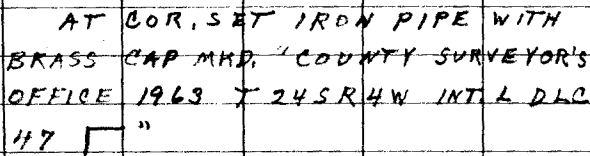 AT COR. SET IRON PIPE WITH
BRASS CAP MKD. "COUNTY SURVEYOR'S
OFFICE 1963 T 24 S R 4 W INT. L DLC
47 "